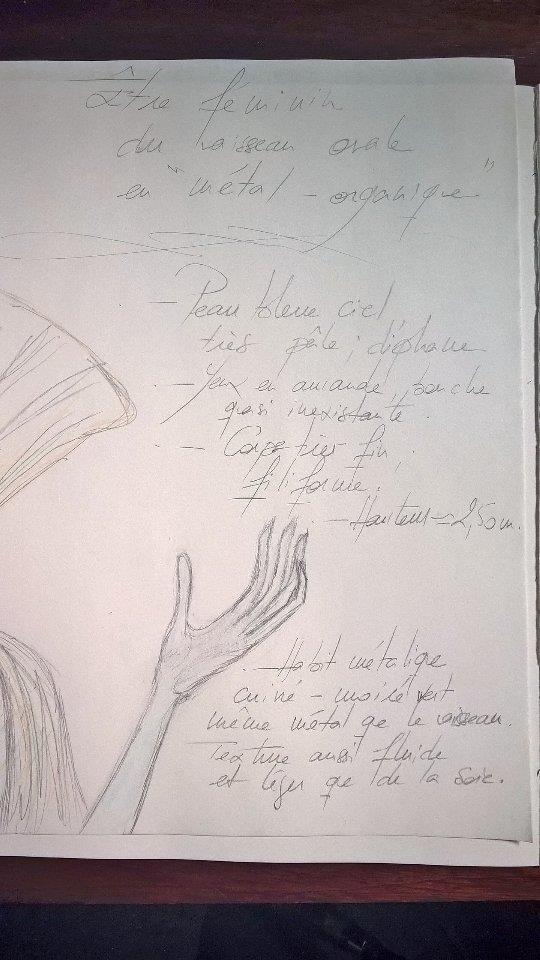 Être féminin
du vaisseau ovale
en "métal - organique"
- Peau bleue ciel
très pâle ; diaphane
- Yeux en amande, bouche
quasi inexistante.
- Corps très fin,
filiforme.
- Hauteur = 2,50 m.
- Habit métalique
cuivré - moiré vert
même métal qe le vaisseau.
Texture aussi fluide
et léger qe de la soie.